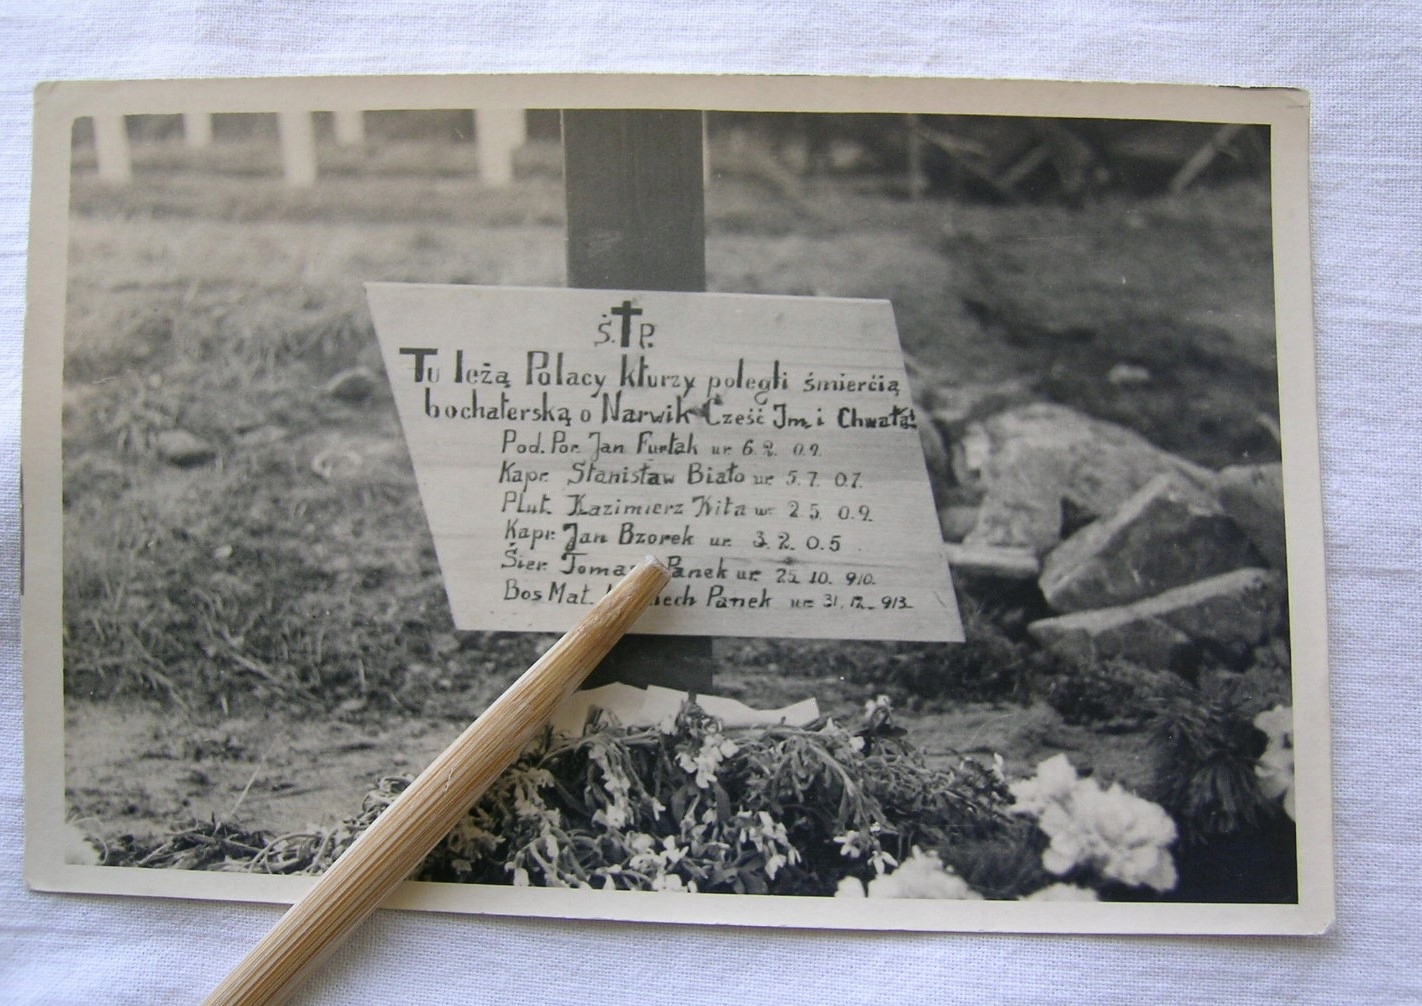 Ś. P.
Tu leżą Polacy kturzy polegli śmierćią
bochaterską o Narwik Cześć Jm i Chwała!
Pod. Por. Jan Furtak ur 6. 2. 0.9.
Kapr. Stanisław Biało ur 5. 7. 0.7.
Plut. Kazimierz Kita ur 2 5. 0.9.
Kapr. Jan Bzorek ur. 3. 2. 0.5
Śier. Panek ur. 10. 910.
Bos Mat. Panek ur 31. 12. 913.